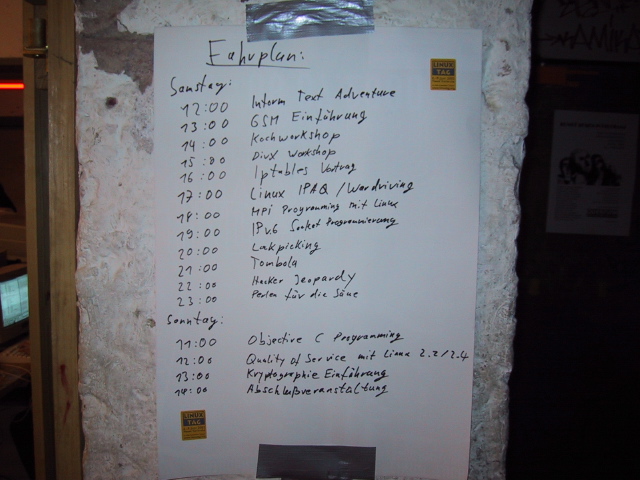 Fahrplan:
LINUX
TAG
Samstag:
12:00 Inform Text Adventure
13:00 GSM Einführung
14:00 Kochworkshop
15:00 DivX Workshop
16:00 Iptables Vortrag
17:00 Linux IPAQ / Wardriving
18:00 MPI Programming mit Linux
19:00 IPv6 Socket Programmierung
20:00 Lockpicking
21:00 Tombola
22:00 Hacker Jeopardy
23:00 Perlen für die Säue
Sonntag:
11:00 Objective C Programming
12:00 Quality of Service mit Linux 2.2/2.4
13:00 Kryptographie Einführung
14:00 Abschlußveranstaltung
LINUX
TAG